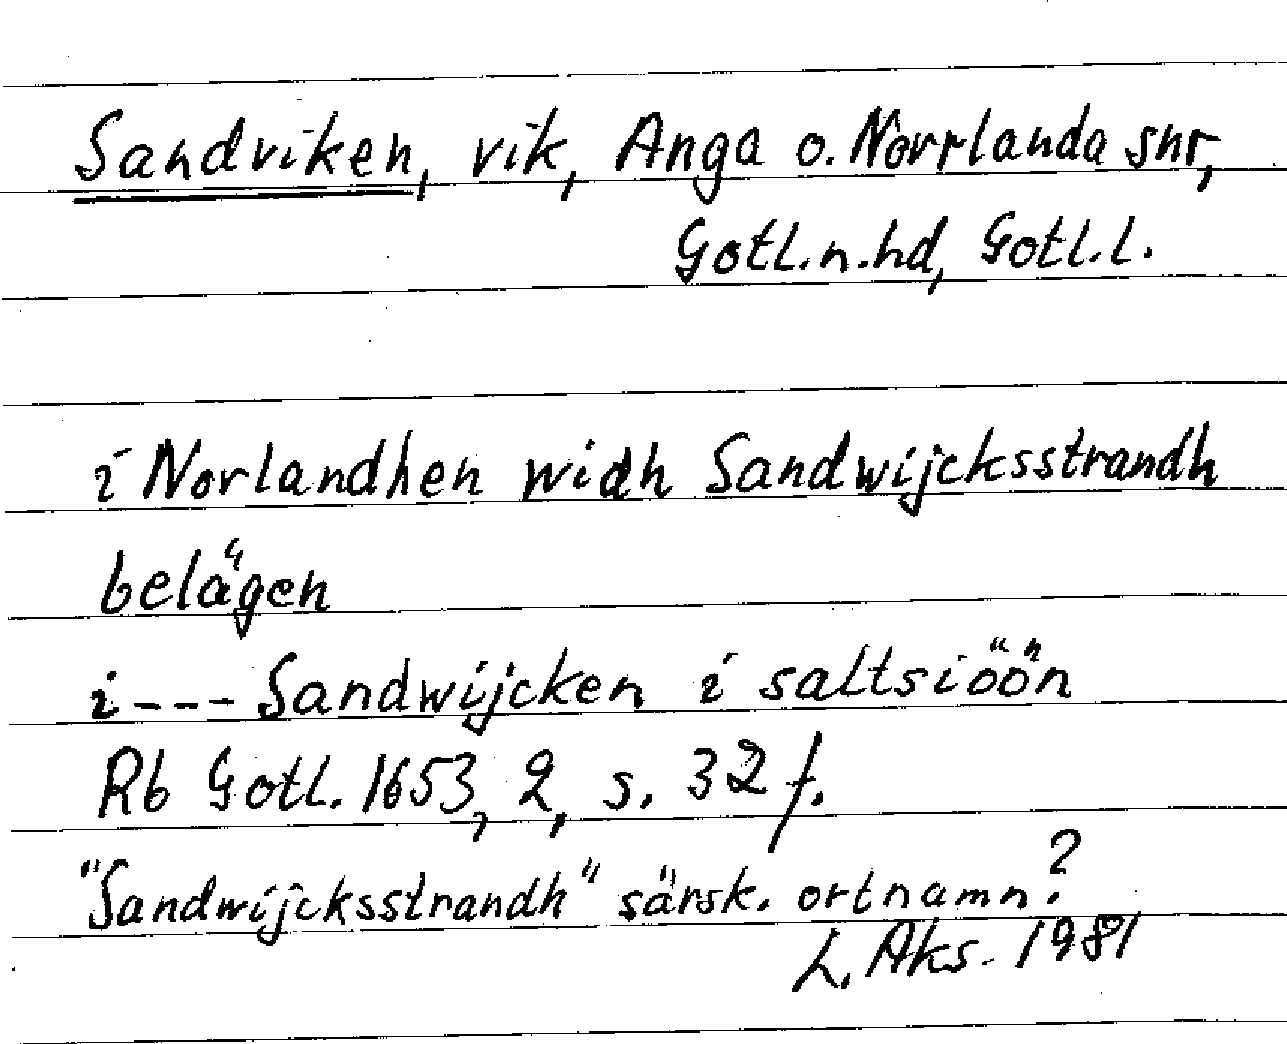 Sandviken, vik, Anga o. Norrlanda snr,
Gotl. n. hd, Gotl. l.
i Norlandhen widh Sandwijcksstrandh
belägen
i---Sandwijcken i saltsiöön
Rb Gotl. 1653, 2, s. 32 f.
"Sandwijcksstrandh" särsk. ortnamn?
L. Aks. 1981